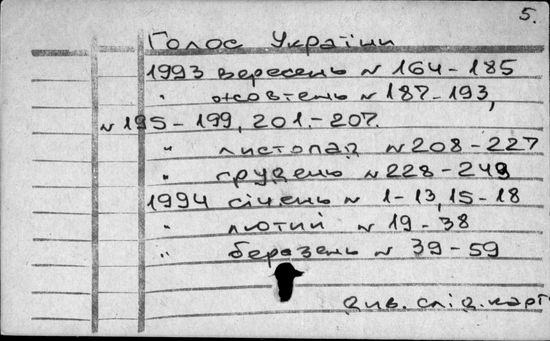 5.
Голос України
1993 вересень N 164-185
" жовтень N 187-193,
N 195-199, 201.-207.
" листопад N 208-227
" грудень N 228-249
1994 січень N 1-13, 15-18
" лютий N 19-38
" березень N 39-59
див. слід. карт